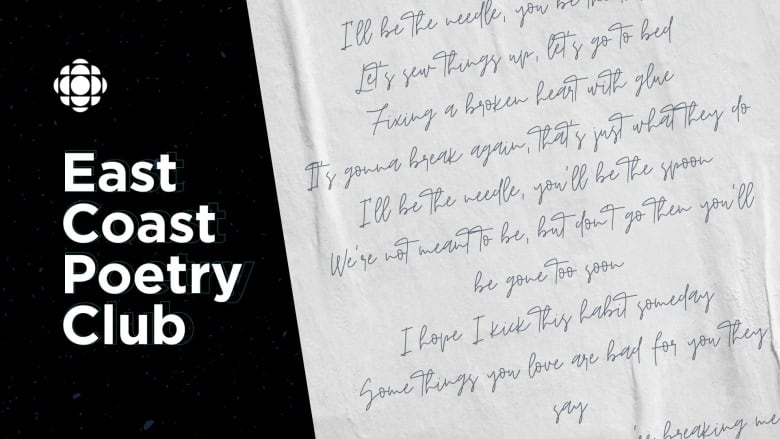 East
Coast
Poetry
Club
I'll be the needle, you be the
Let's sew things up, let's go to bed
Fixing a broken heart with glue
It's gonna break again, that's just what they do
I'll be the needle, you'll be the spoon
We're not meant to be, but don't go then you'll
be gone too soon
I hope I kick this habit someday
Some things you love are bad for you they
say
breaking me